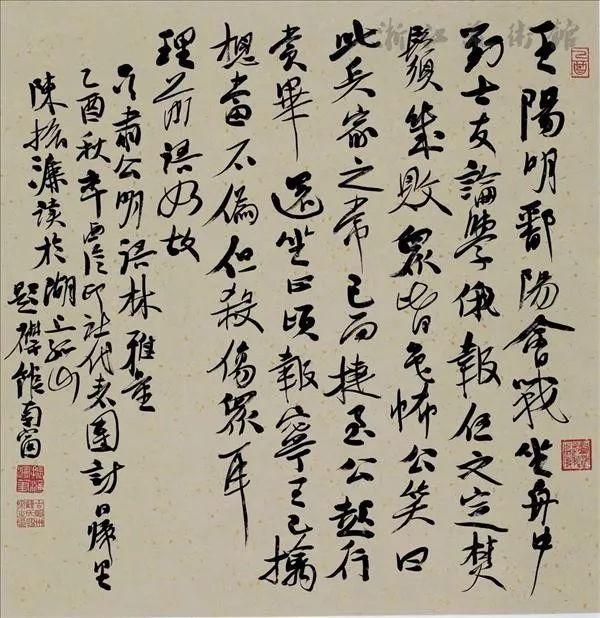 浙江美術館
王陽明鄱陽會戰坐舟中
對士友論學俄報伍文定焚
鬚幾敗衆皆色怖公笑曰
此兵家之常已而捷至公起行
賞畢還坐曰頃報寧王已擒
想當不偽但殺傷衆耳
理前語如故
吳肅公明語林雅量
乙酉秋率西泠印社代表團訪日歸里
陳振濂讀於湖上孤山
題襟館南窗
乙酉